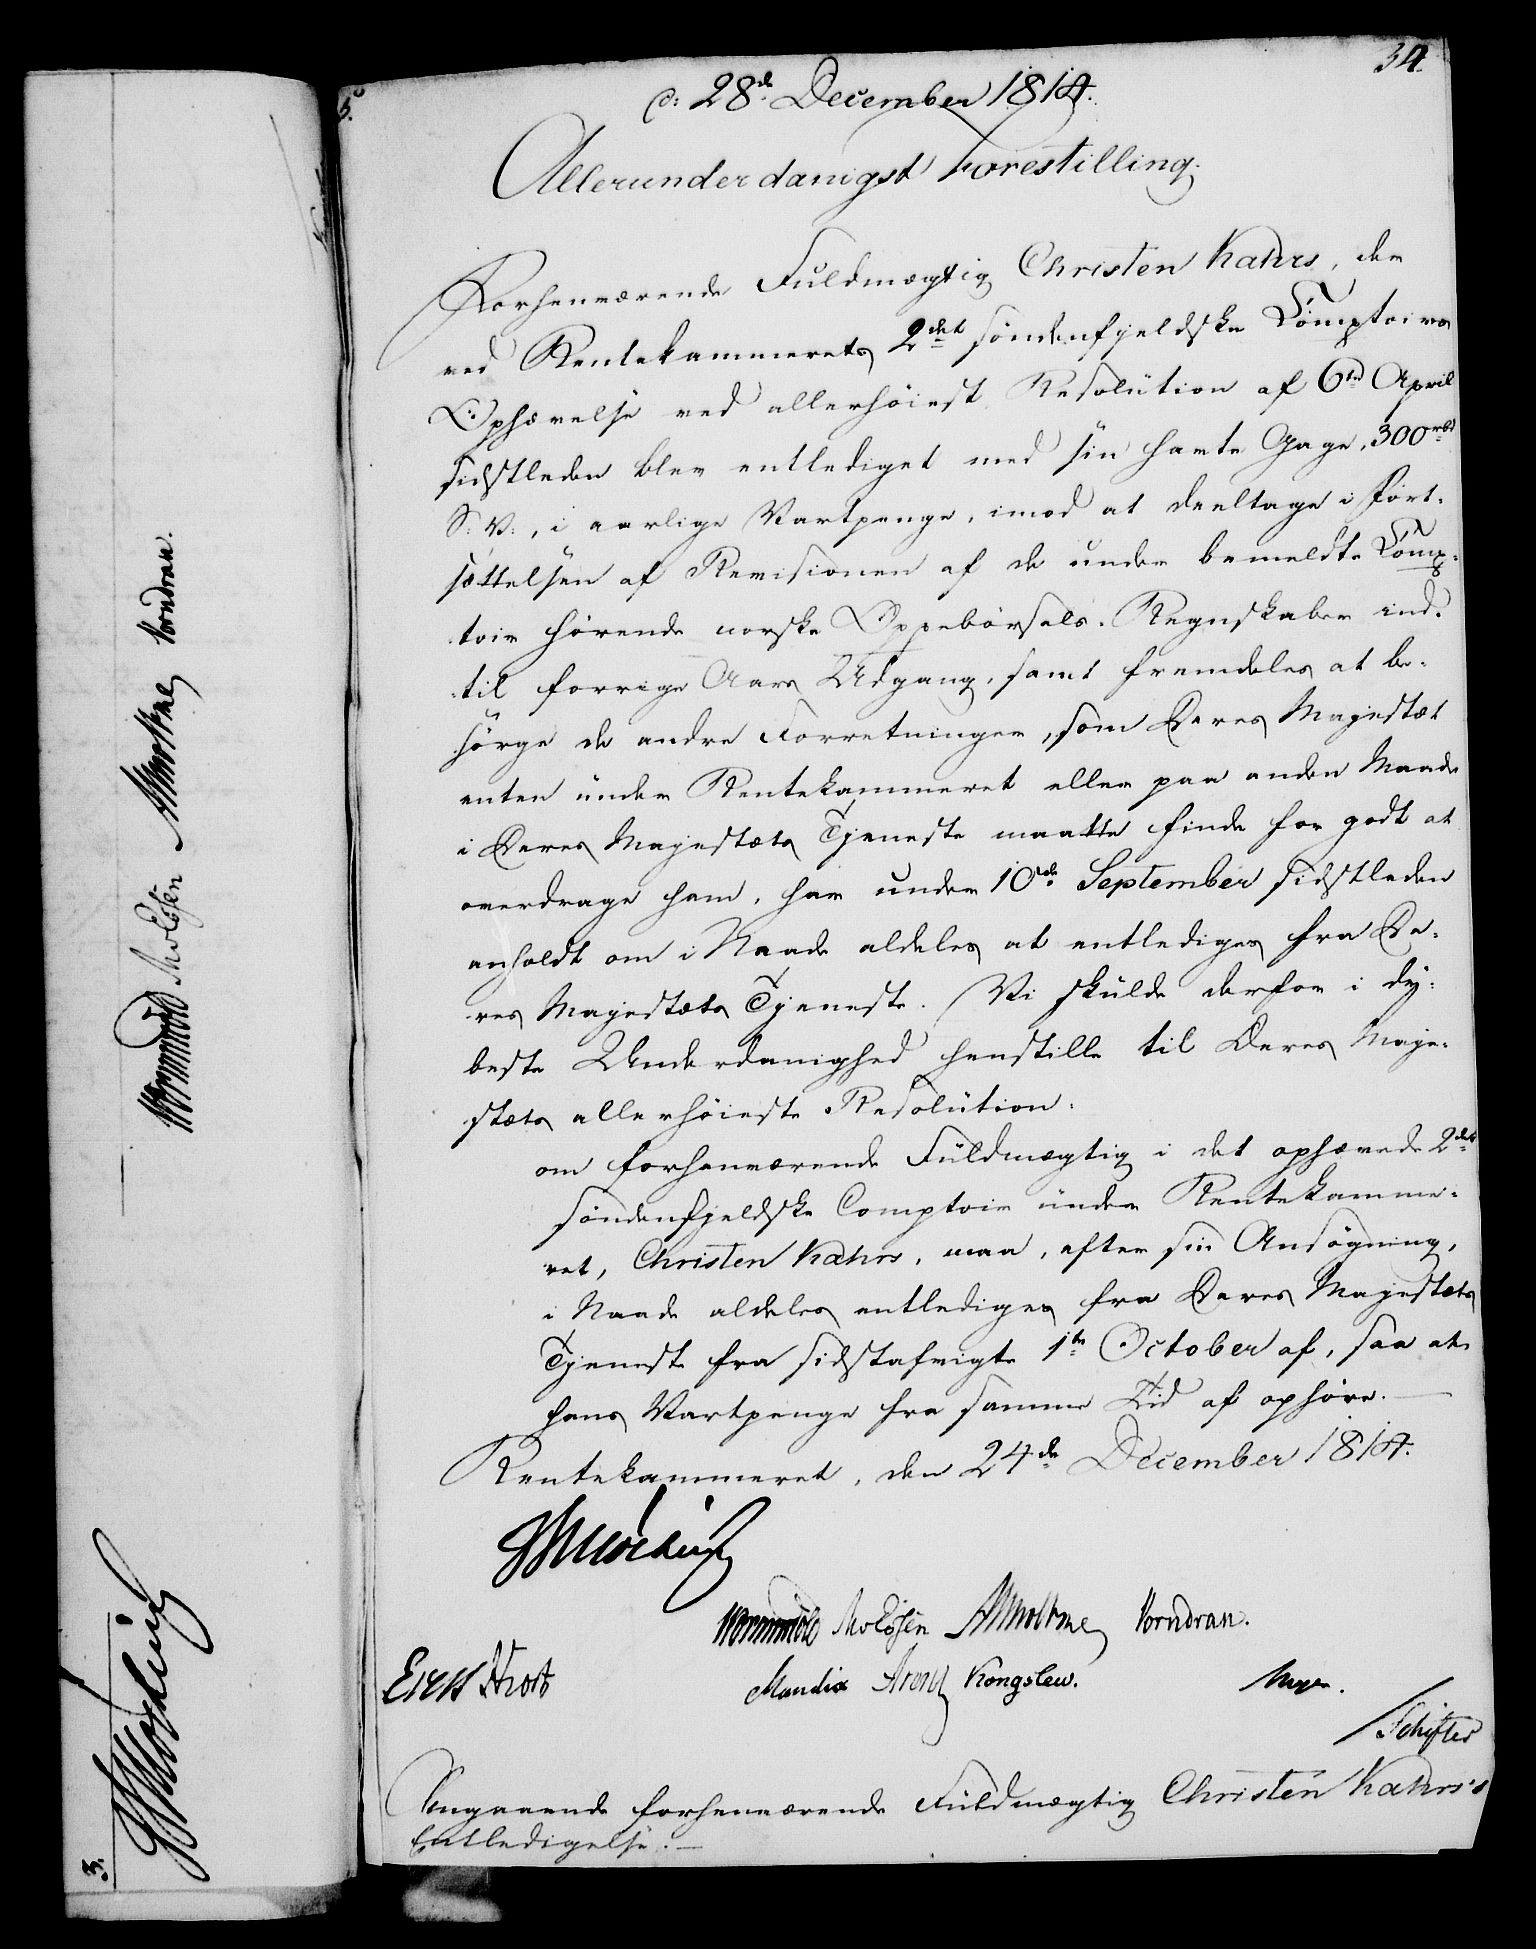 34.
5.
d: 28de December 1814.
Allerunderdanigst Forestilling.
Forhenværende Fuldmægtig Christen Kahrs, der
ved Rentekammerets 2det søndenfjeldske Comptoirs
Ophævelse ved allerhöiest Resolution af 6te April
sidstleden blev entlediget med sin havte Gage, 300 rbd
S: V:, i aarlige Vartpenge, imod at deeltage i Fort-
sættelsen af Revisionen af de under bemeldte Comp-
toir hørende norske Oppebörsels-Regnskaber ind-
til forrige Aars Udgang, samt fremdeles at be-
sörge de andre Forretninger, som Deres Majestæt
enten under Rentekammeret eller paa anden Maade
i Deres Majestæts Tjeneste maatte finde for godt at
overdrage ham, har under 10de September sidstleden
anholdt om i Naade aldeles at entlediges fra De-
res Majestæts Tjeneste. Vi skulde derfor i dy-
beste Underdanighed henstille til Deres Maje-
stæts allerhöieste Resolution:
om forhenværende Fuldmægtig i det ophævede 2det
søndenfjeldske Comptoir under Rentekamme-
ret, Christen Kahrs, maa, efter sin Ansögning,
i Naade aldeles entlediges fra Deres Majestæts
Tjeneste fra sidstafvigte 1te October af, saa at
hans Vartpenge fra samme Tid af ophöre.
Rentekammeret, den 24de December 1814.
Wormskiold Monrad Vorndran.
Mandix Kongslew. Meyer.
Schifter
Angaaende forhenværende Fuldmægtig Christen Kahrs's
Entledigelse.
3.
Vorndran.